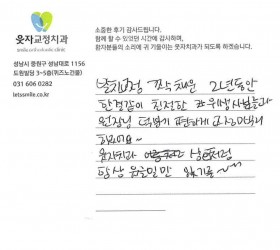 웃자교정치과
smile orthodontic clinic
성남시 중원구 성남대로 1156
도원빌딩 3~5층(위즈노건물)
031 606 0282
letssmile.co.kr
소중한 후기 감사드립니다.
함께 할 수 있었던 시간에 감사하며,
환자분들의 소리에 귀 기울이는 웃자교정치과가 되도록 하겠습니다.
꽉 채운 2년동안
한결같이 친절한 위생사님들과
원장님 덕분에 편하게
웃자치과
항상 웃을일만